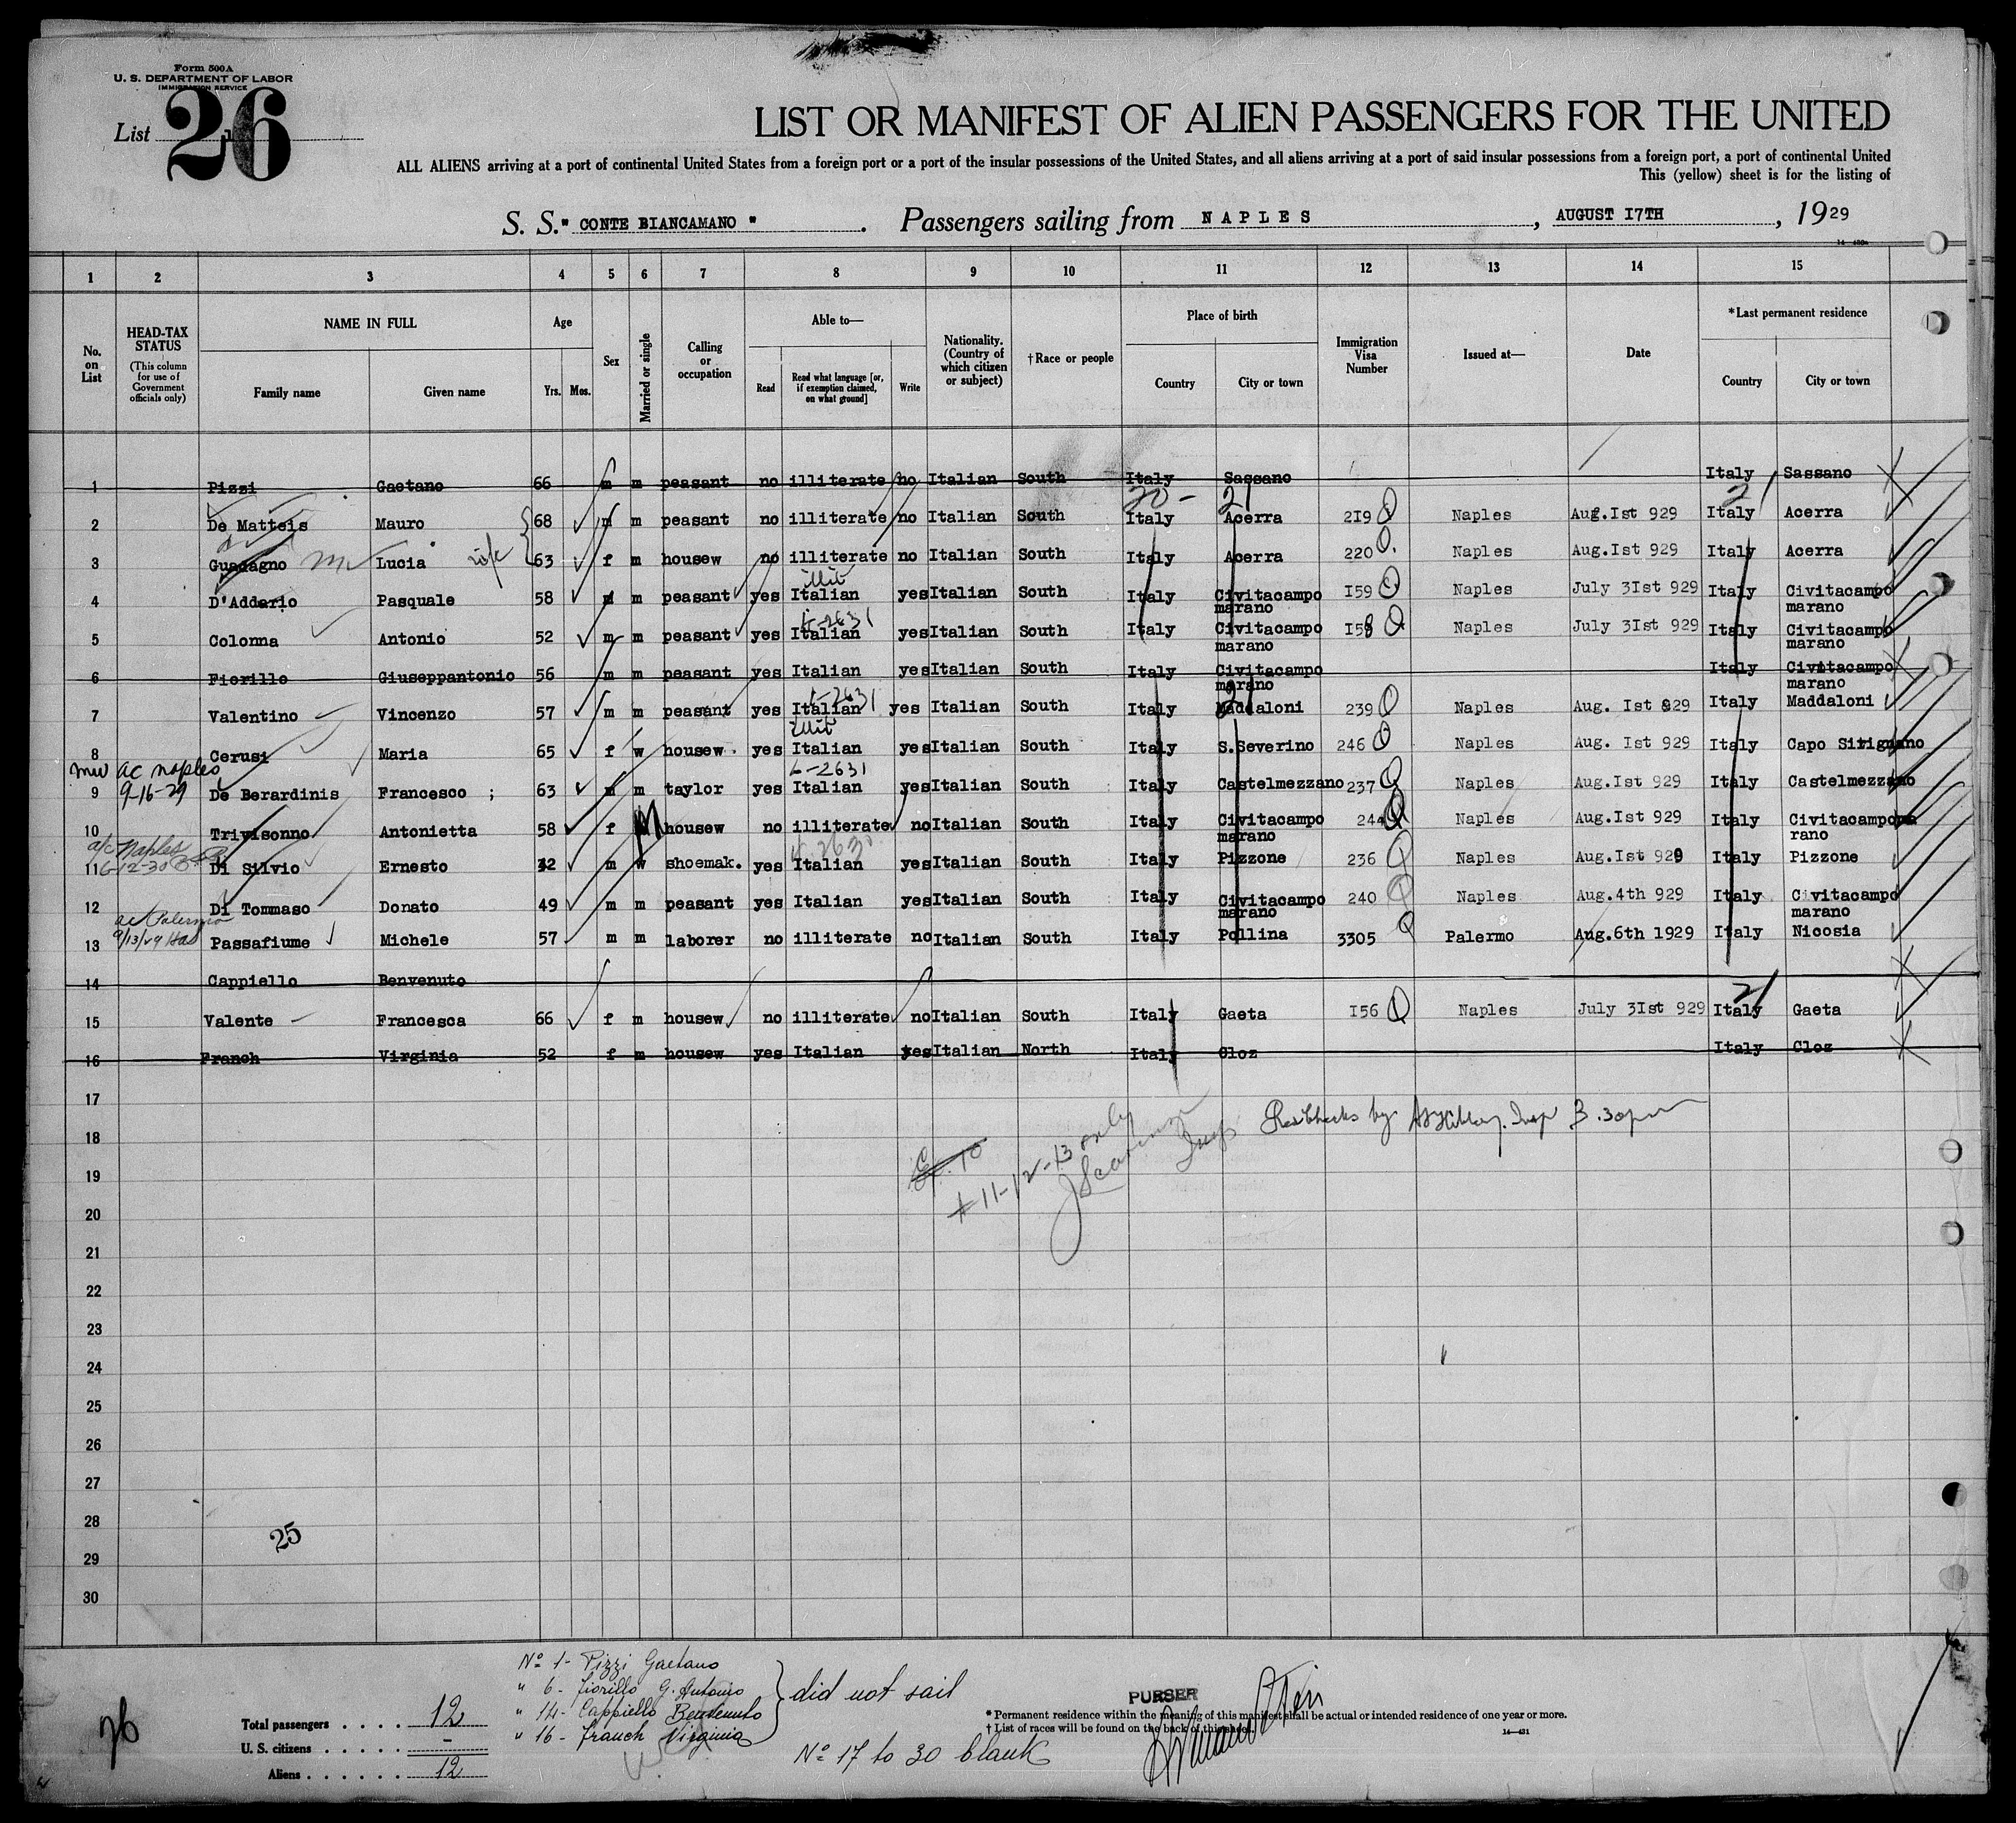 Form 500A
U. S. DEPARTMENT OF LABOR
IMMIGRATION SERVICE
List 26
LIST OR MANIFEST OF ALIEN PASSENGERS FOR THE UNITED
ALL ALIENS arriving at a port of continental United States from a foreign port or a port of the insular possessions of the United States, and all aliens arriving at a port of said insular possessions from a foreign port, a port of continental United
This (yellow) sheet is for the listing of
S. S. " CONTE BIANCAMANO " . Passengers sailing from NAPLES , AUGUST I7TH , 1929
14—430a
1 2 3 4 5 6 7 8 9 10 11 12 13 14 15
No. on List
HEAD-TAX STATUS
(This column for use of Government officials only)
NAME IN FULL
Family name Given name
Age
Yrs. Mos.
Sex
Married or single
Calling or occupation
Able to—
Read Read what language [or, if exemption claimed, on what ground] Write
Nationality. (Country of which citizen or subject)
†Race or people
Place of birth
Country City or town
Immigration Visa Number
Issued at—
Date
*Last permanent residence
Country City or town
1 Pizzi Gaetano 66 m m peasant no illiterate no Italian South Italy Sassano Italy Sassano
20- 21 21
2 De Matteis Mauro 68 m m peasant no illiterate no Italian South Italy Acerra 2I9 Naples Aug.Ist 929 Italy Acerra
3 Guadagno Lucia wife 63 f m housew no illiterate no Italian South Italy Acerra 220 Naples Aug.Ist 929 Italy Acerra
illit
4 D'Addario Pasquale 58 m m peasant yes Italian yes Italian South Italy Civitacampo marano I59 Naples July 3Ist 929 Italy Civitacampo marano
6-2631
5 Colonna Antonio 52 m m peasant yes Italian yes Italian South Italy Civitacampo marano I58 Naples July 3Ist 929 Italy Civitacampo marano
6 Fiorillo Giuseppantonio 56 m m peasant yes Italian yes Italian South Italy Civitacampo marano Italy Civitacampo marano
6-2631 21
7 Valentino Vincenzo 57 m m peasant yes Italian yes Italian South Italy Maddaloni 239 Naples Aug. Ist 929 Italy Maddaloni
illit
8 Cerusi Maria 65 f w housew. yes Italian yes Italian South Italy S.Severino 246 Naples Aug. Ist 929 Italy Capo Sirignano
ac naples
9-16-29
6-2631
9 De Berardinis Francesco ; 63 m m taylor yes Italian yes Italian South Italy Castelmezzano 237 Naples Aug.Ist 929 Italy Castelmezzano
10 Trivisonno Antonietta 58 f M housew no illiterate no Italian South Italy Civitacampo marano 244 Naples Aug.Ist 929 Italy Civitacampoma rano
a/c Naples
6-12-30
6-2630
11 Di Silvio Ernesto 42 m w shoemak. yes Italian yes Italian South Italy Pizzone 236 Naples Aug.Ist 929 Italy Pizzone
12 Di Tommaso Donato 49 m m peasant yes Italian yes Italian South Italy Civitacampo marano 240 Naples Aug.4th 929 Italy Civitacampo marano
ac Palermo
9/13/29
13 Passafiume Michele 57 m m laborer no illiterate no Italian South Italy Pollina 3305 Palermo Aug.6th 1929 Italy Nicosia
14 Cappiello Benvenuto
21
15 Valente Francesca 66 f m housew no illiterate no Italian South Italy Gaeta I56 Naples July 3Ist 929 Italy Gaeta
16 Franch Virginia 52 f m housew yes Italian yes Italian North Italy Cloz Italy Cloz
17
18
19
20
21
22
23
24
25
26
27
28
29
30
11-12-13 only
Insp
by
Insp 3.30pm
25
Nº 1- Pizzi Gaetano
" 6- Fiorillo G. Antonio
" 14- Cappiello Benvenuto
" 16- Franch Virginia
did not sail
Nº 17 to 30 blank
26
Total passengers . . . . 12
U. S. citizens . . . . . -
Aliens . . . . . . 12
PURSER
* Permanent residence within the meaning of this manifest shall be actual or intended residence of one year or more.
† List of races will be found on the back of this sheet.
14—431